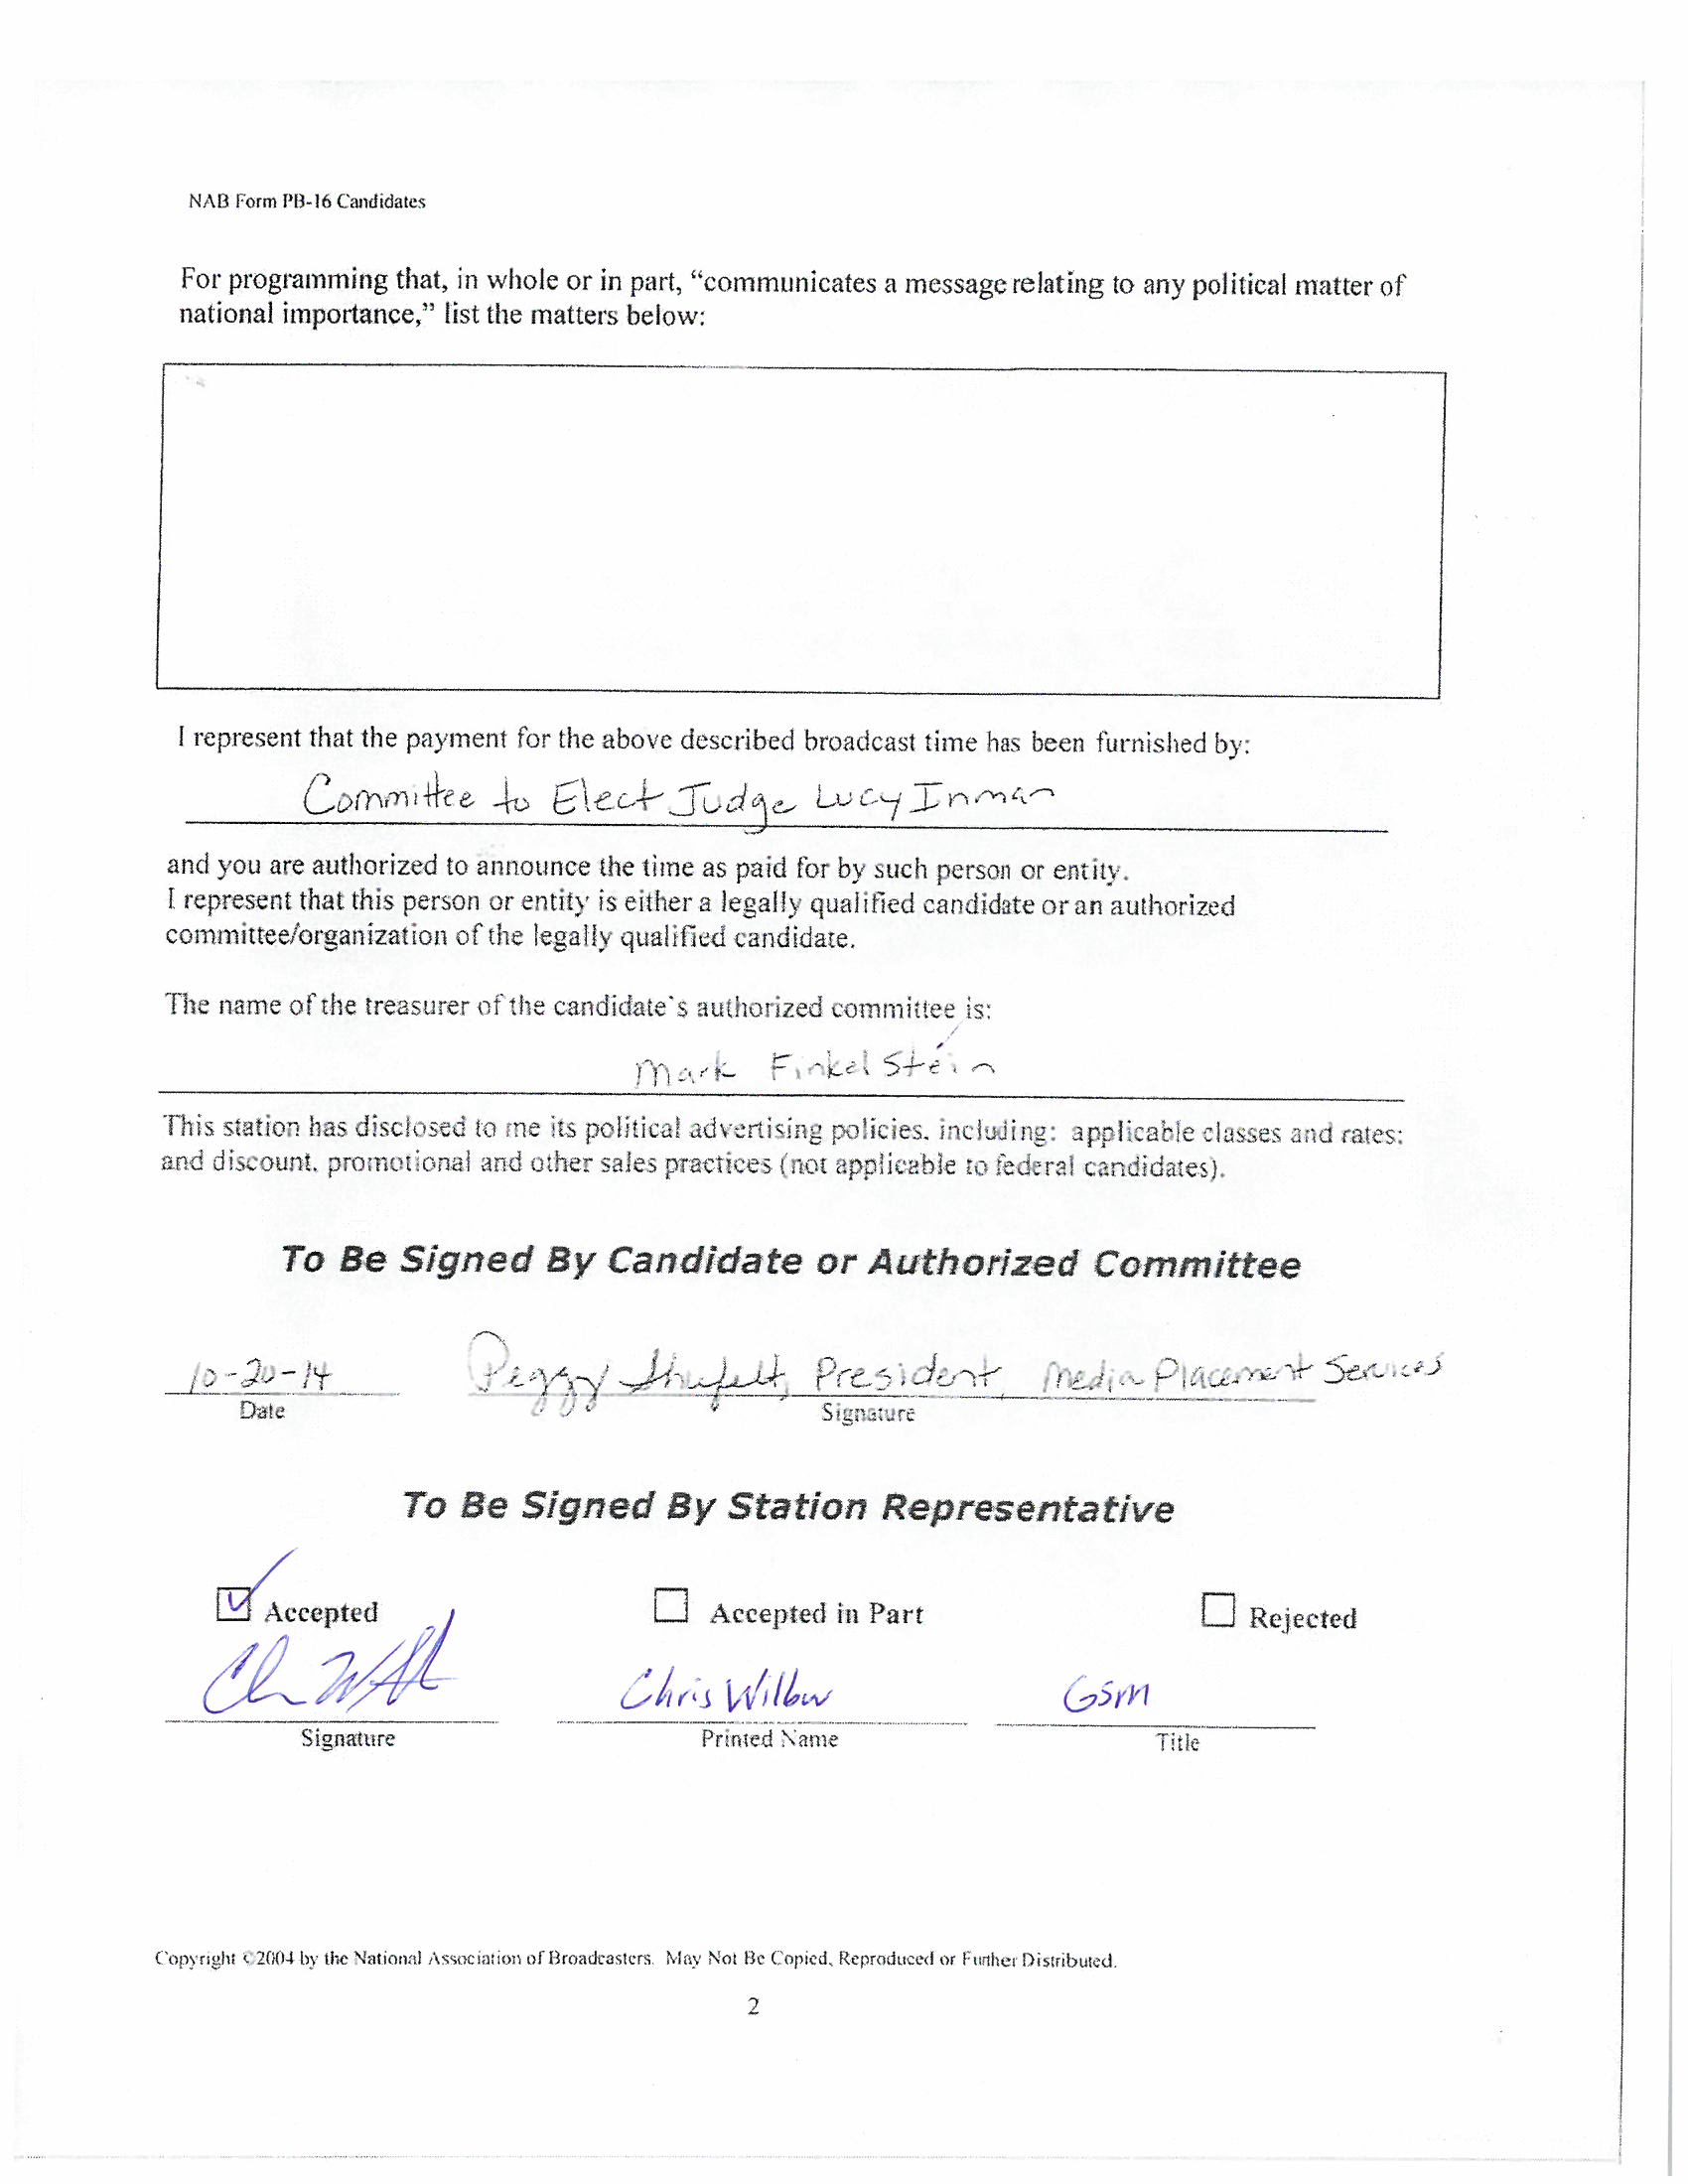 NAB Form PB-16 Candidates
For programming that, in whole or in part, “communicates a message relating to any political matter of
national importance,” list the matters below:
I represent that the payment for the above described broadcast time has been furnished by:
Committee to Elect Judge Lucy Inman
and you are authorized to announce the time as paid for by such person or entity.
I represent that this person or entity is either a legally qualified candidate or an authorized
committee/organization of the legally qualified candidate.
The name of the treasurer of the candidate's authorized committee is:
Mark Finkel Stein
This station has disclosed to me its political advertising policies, including: applicable classes and rates;
and discount, promotional and other sales practices (not applicable to federal candidates).
To Be Signed By Candidate or Authorized Committee
10-20-14 Peggy Shufelt, President, Media Placement Services
Date Signature
To Be Signed By Station Representative
Accepted Accepted in Part Rejected
Chris GSM
Signature Printed Name Title
Copyright ©2004 by the National Association of Broadcasters. May Not Be Copied, Reproduced or Further Distributed.
2